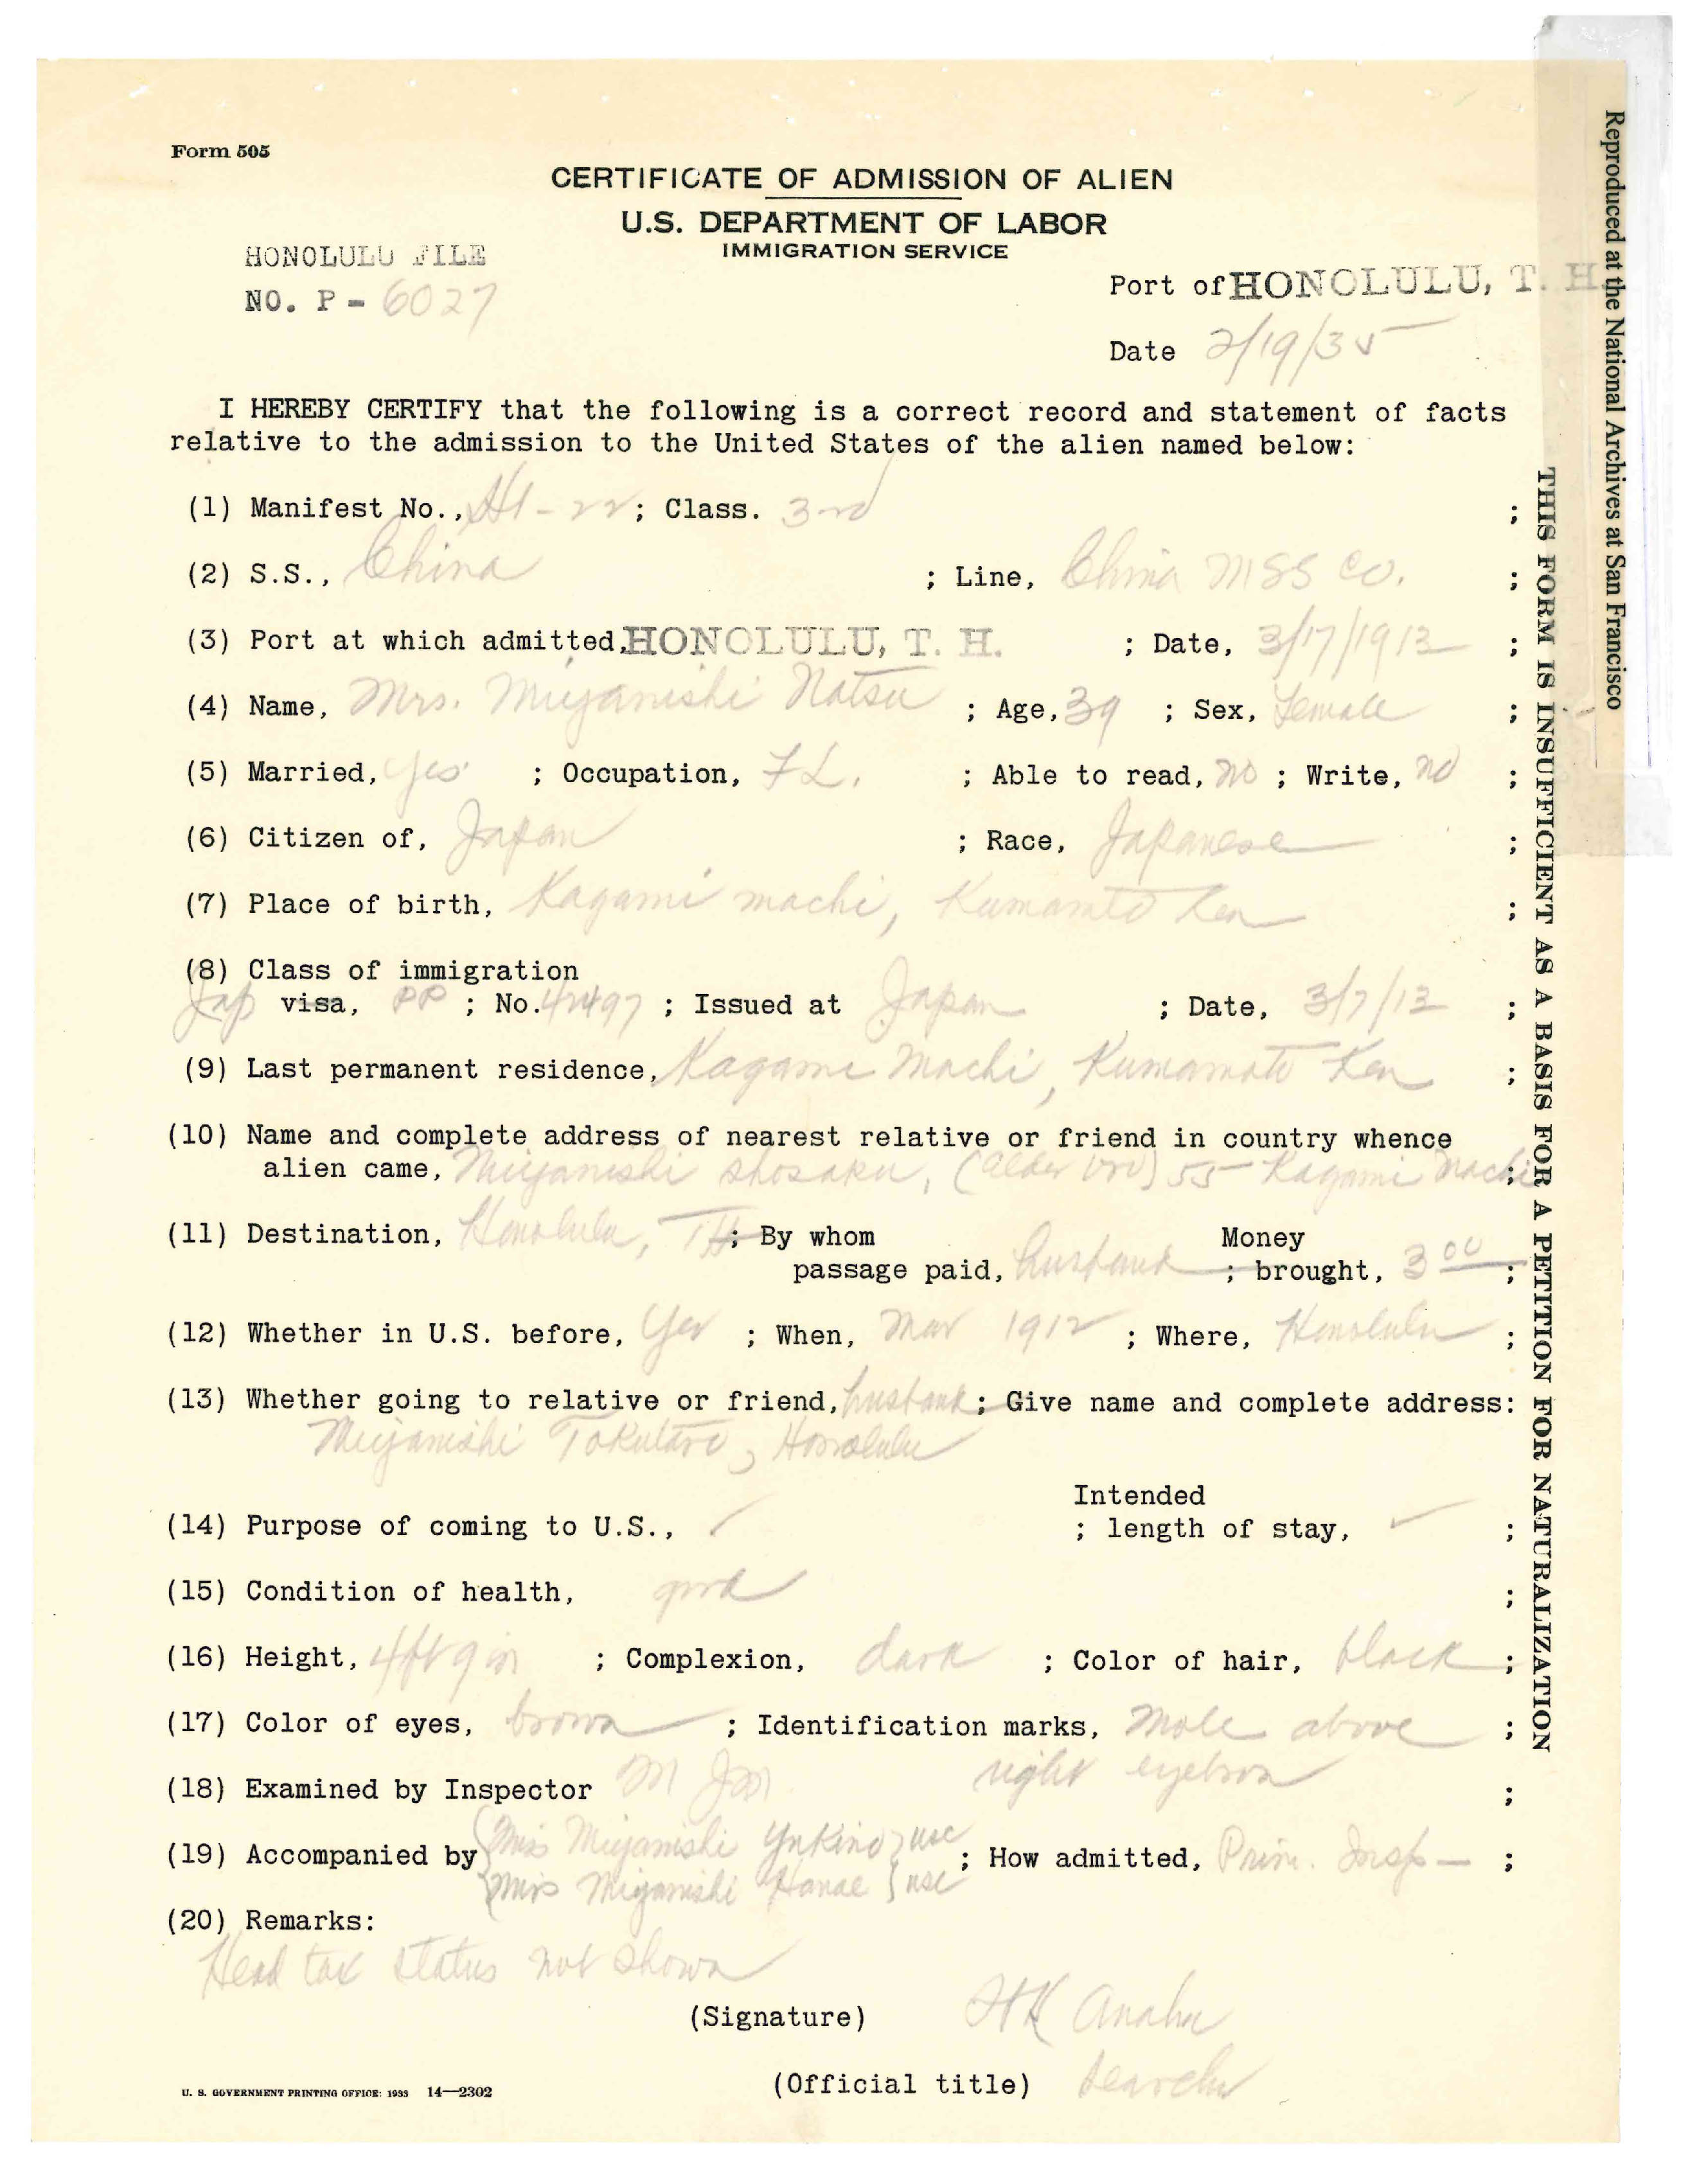 Form 505
CERTIFICATE OF ADMISSION OF ALIEN
U.S. DEPARTMENT OF LABOR
IMMIGRATION SERVICE
HONOLULU FILE
NO. P - 6027
Port of HONOLULU, T. H.
Date 2/19/35
I HEREBY CERTIFY that the following is a correct record and statement of facts
relative to the admission to the United States of the alien named below:
(1) Manifest No., -22; Class. 3rd ;
(2) S.S., China ; Line, China MSS Co. ;
(3) Port at which admitted, HONOLULU, T. H. ; Date, 3/17/1913 ;
(4) Name, Mrs. Miyanishi Natsu ; Age, 39 ; Sex, Female ;
(5) Married, yes ; Occupation, FL. ; Able to read, no ; Write, no ;
(6) Citizen of, Japan ; Race, Japanese ;
(7) Place of birth, Kagami machi, Kumamoto Ken ;
(8) Class of immigration
Jap visa, PP ; No. 42497 ; Issued at Japan ; Date, 3/7/13 ;
(9) Last permanent residence, Kagami Machi, Kumamoto Ken ;
(10) Name and complete address of nearest relative or friend in country whence
alien came, Miyanishi Shosaku, 55 Kagami Machi ;
(11) Destination, Honolulu, TH ; By whom Money
passage paid, husband ; brought, 3 00 ;
(12) Whether in U.S. before, Yes ; When, Mar 1912 ; Where, Honolulu ;
(13) Whether going to relative or friend, husband ; Give name and complete address:
Miyanishi Tokutaro, Honolulu
Intended
(14) Purpose of coming to U.S., ✓ ; length of stay, ✓ ;
(15) Condition of health, good ;
(16) Height, 4ft 9in ; Complexion, dark ; Color of hair, black ;
(17) Color of eyes, brown ; Identification marks, Mole above ;
right eyebrow
(18) Examined by Inspector ;
(19) Accompanied by Miss Miyanishi Yukino } usc ; How admitted, Prim. Insp — ;
Miss Miyanishi Hanae } usc
(20) Remarks:
Head tax status not shown
(Signature) HK Anahu
(Official title) Searcher
U. S. GOVERNMENT PRINTING OFFICE: 1933 14—2302
THIS FORM IS INSUFFICIENT AS A BASIS FOR A PETITION FOR NATURALIZATION
Reproduced at the National Archives at San Francisco